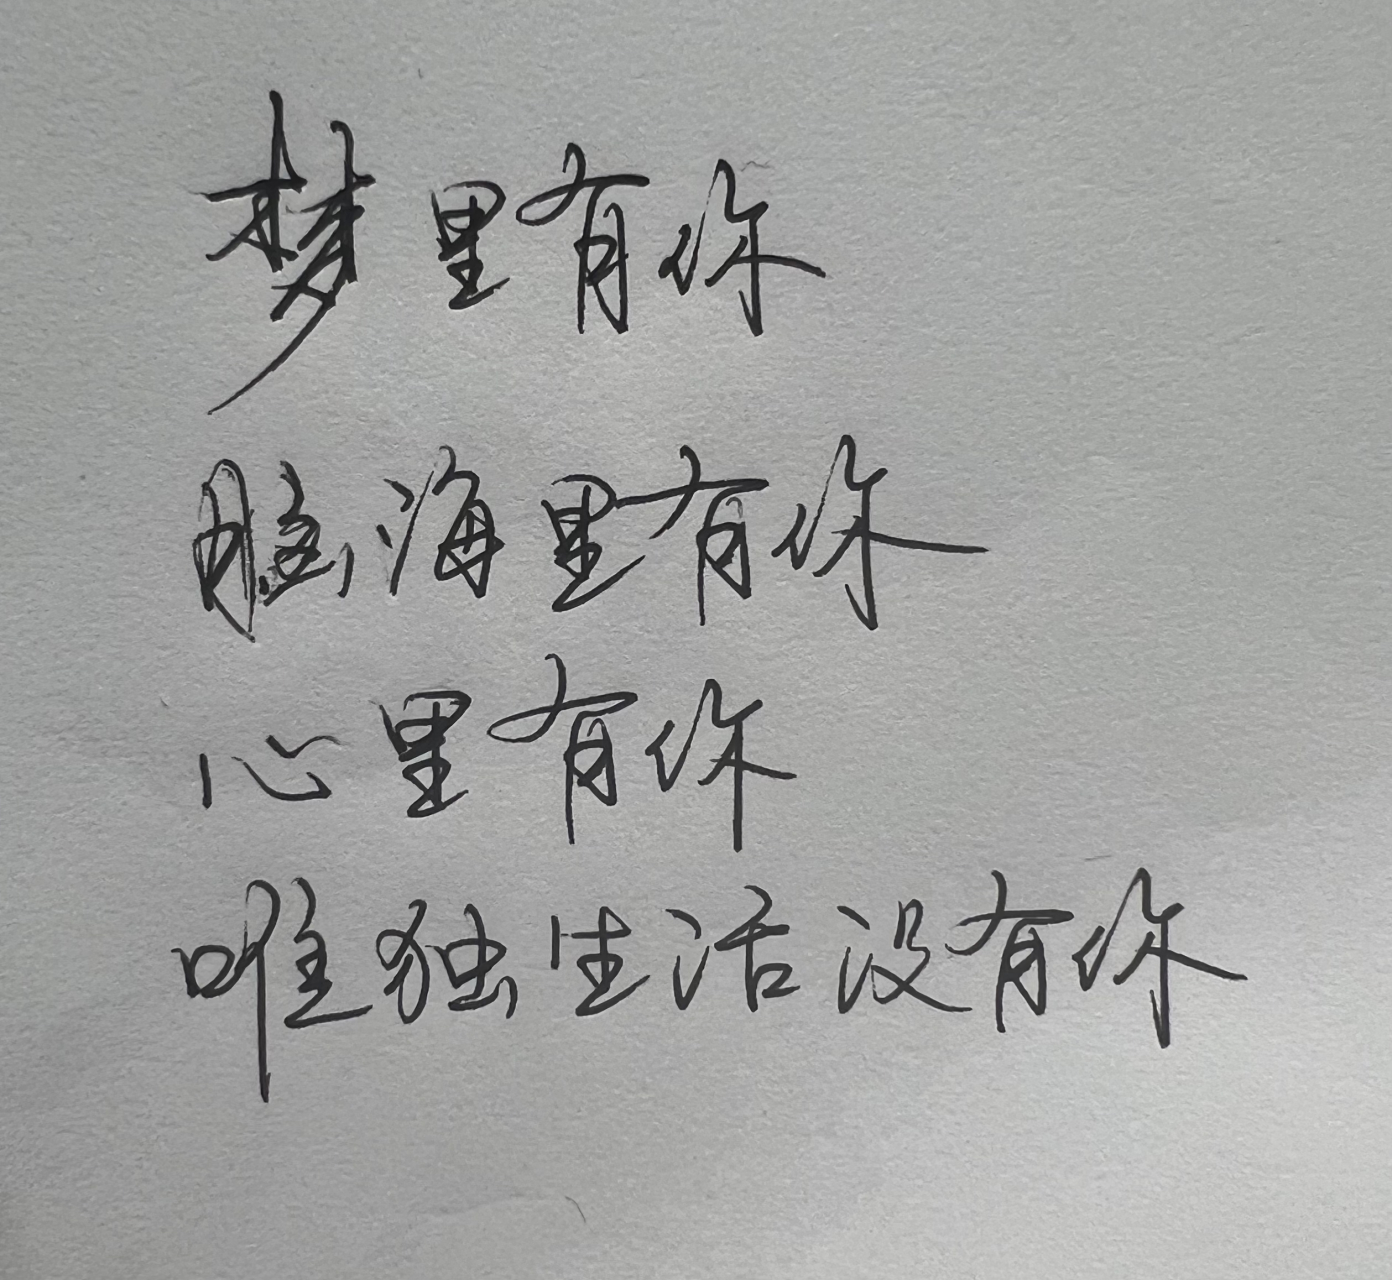 梦里有你
脑海里有你
心里有你
唯独生活没有你